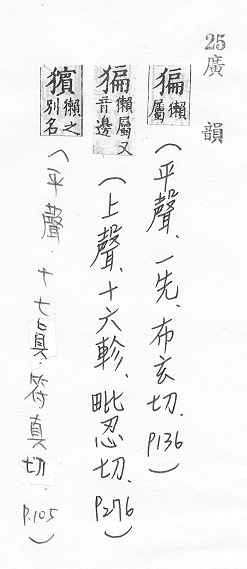 25廣韻
猵 獺屬 (平聲、一先、布玄切、P136)
猵 獺屬又音邊 (上聲、十六軫、毗忍切、P276)
獱 獺之別名 (平聲、十七真、符真切、P.105)